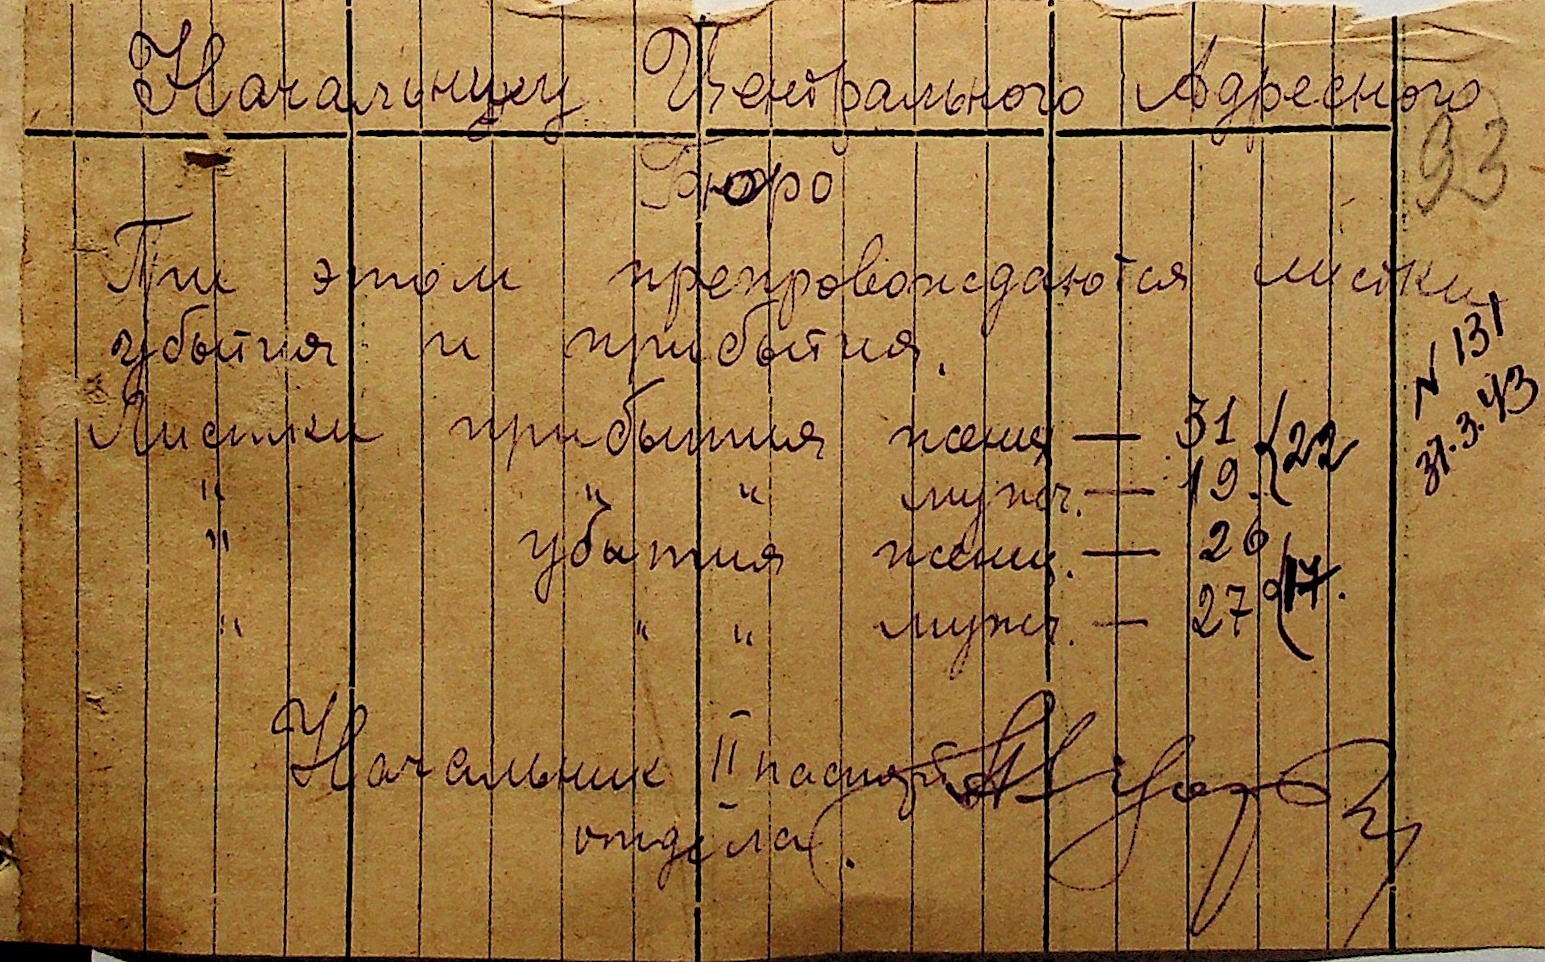 Начальнику Центрального Адресного
93
Бюро
При этом препровождаются листки
убытия и прибытия.
N 131
31.3.43
Листки прибытия женщ — 31 } 22
" " " мужч. — 19.
" убытия женщ. — 26 } 17.
" " " мужч. — 27
Начальник II паспорт
отдела